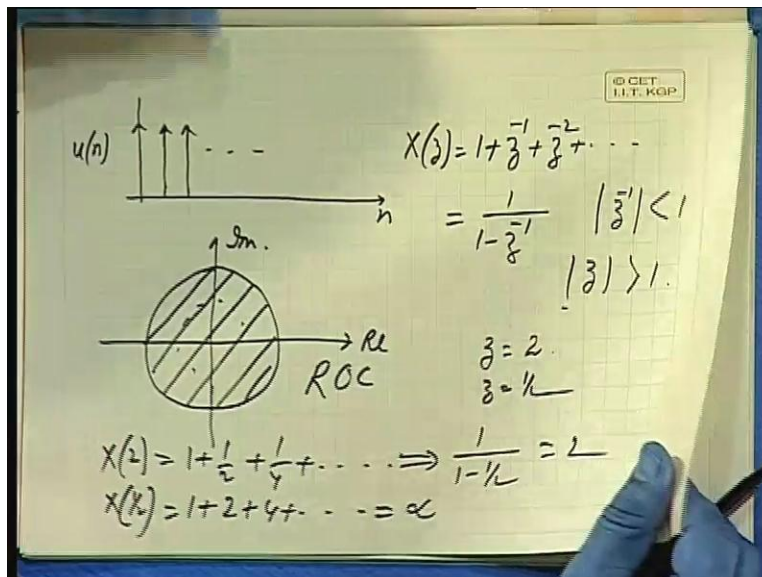 © CET
I.I.T. KGP
u(n)
n
X(z) = 1 + z⁻¹ + z⁻² + · · ·
= 1/(1 - z⁻¹) |z⁻¹| < 1
|z| > 1.
Im.
Re
ROC
z = 2.
z = 1/2
X(2) = 1 + 1/2 + 1/4 + · · · · ⇒ 1/(1 - 1/2) = 2
X(1/2) = 1 + 2 + 4 + · · · = ∝